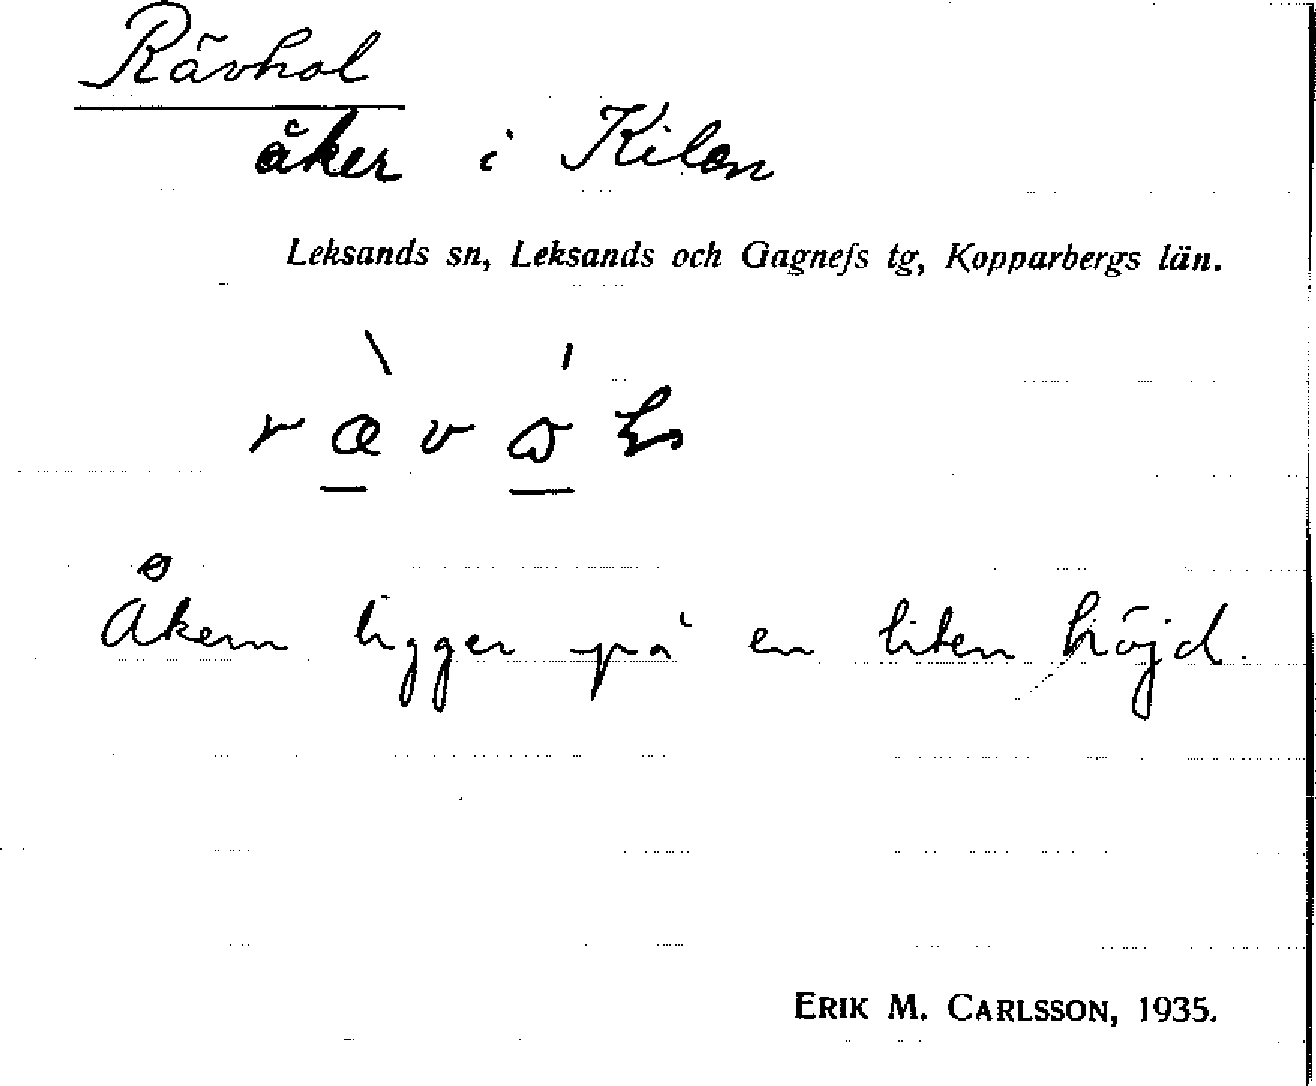 Rävhol
åker i Kilen
Leksands sn, Leksands och Gagnefs tg, Kopparbergs län.
Åkern ligger på en liten höjd.
ERIK M. CARLSSON, 1935.